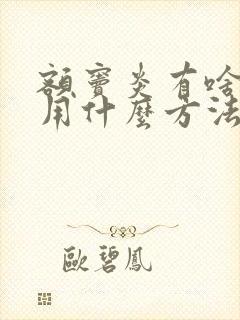 額竇炎有啥
用什麼方法
歐碧鳳